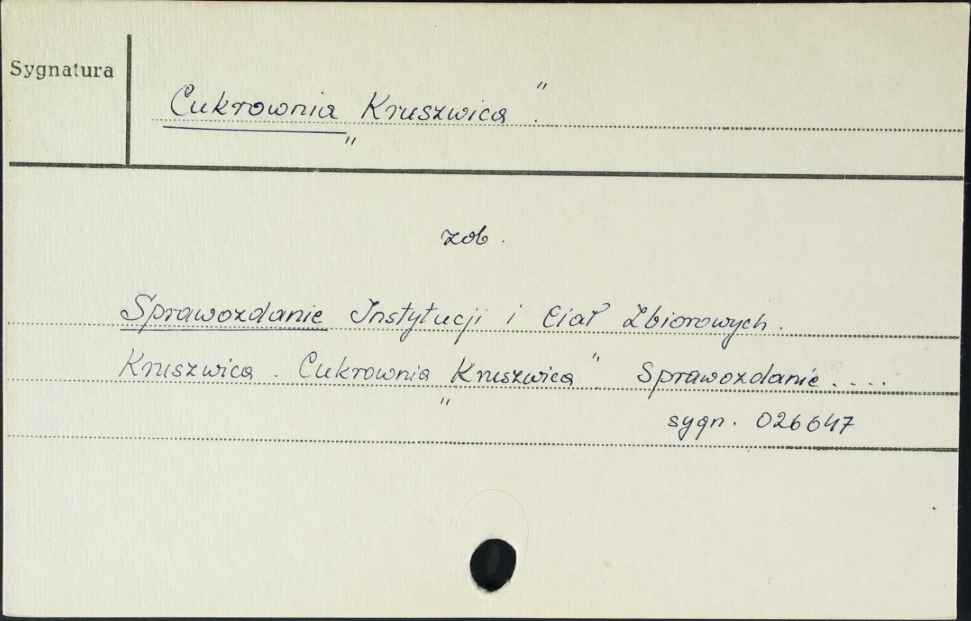 Sygnatura
Cukrownia „Kruszwica”.
zob.
Sprawozdanie Instytucji i Ciał Zbiorowych.
Kruszwica. Cukrownia „Kruszwica”. Sprawozdanie....
sygn. 026647